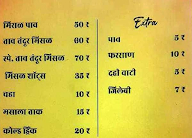 मिसळ पाव 50 ₹
ताव तंदूर मिसळ 60 ₹
स्पे. ताव तंदूर मिसळ 70 ₹
मिसळ शॉट्स 35 ₹
वडा 10 ₹
मसाला ताक 15 ₹
कोल्ड ड्रिंक 20 ₹
Extra
पाव 5 ₹
फरसाण 10 ₹
दही वाटी 5 ₹
जिलेबी 7 ₹